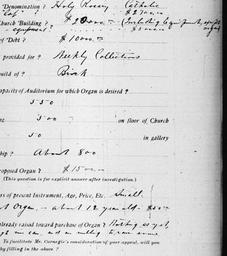 Denomination? Holy Rosary Catholic
Church Building? $20000.00 (Including
of Debt? $10000.00
provided for? Weekly Collections
uild of? Brick
apacity of Auditorium for which Organ is desired?
550
500 on floor of Church
50 in gallery
ship? About 800
roposed Organ? $1500.00
(This question is for explicit answer after investigation.)
rs of present Instrument, Age, Price, Etc. Small
Organ, - about 12 years old.
already raised toward purchase of Organ? Nothing as yet,
To facilitate Mr. Carnegie's consideration of your appeal, will you
by filling in the above?